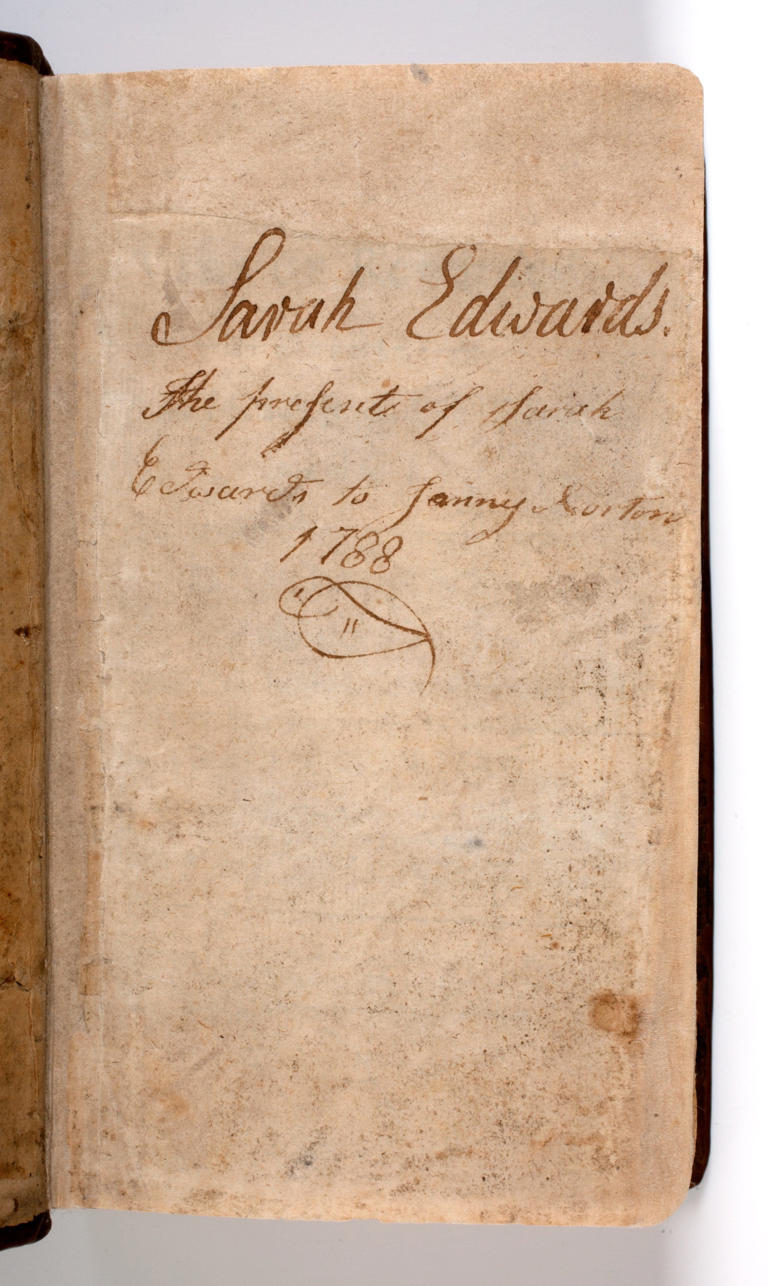 Sarah Edwards.
The preſent of Sarah
Edwards to Fanny Norton
1788